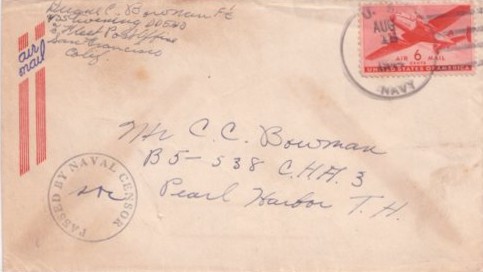 C. Bowman
Fleet Post Office
San Francisco
Calif.
air
mail
U.S.
AUG
NAVY
AIR 6 MAIL
CENTS
UNITED STATES OF AMERICA
Mr C. C. Bowman
B5-538 C.H.A. 3
Pearl Harbor T.H.
PASSED BY NAVAL CENSOR